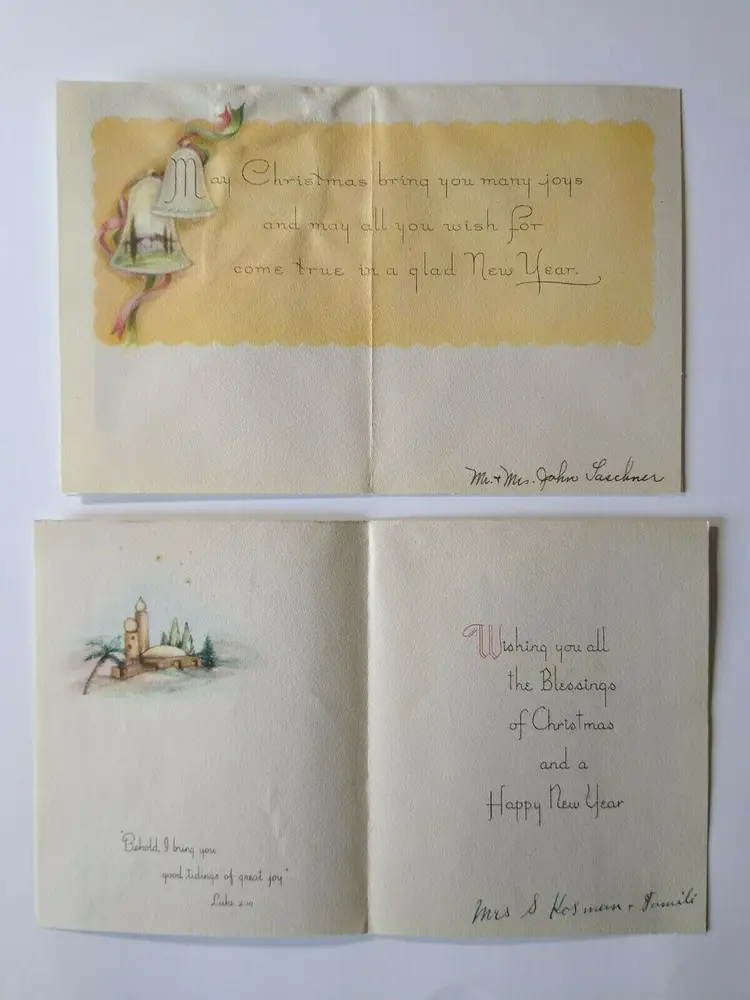 May Christmas bring you many joys
and may all you wish for
come true in a glad New Year.
Mr. + Mrs. John Laschner
"Behold, I bring you
good tidings of great joy"
Luke 2:10
Wishing you all
the Blessings
of Christmas
and a
Happy New Year
Mrs S Kosman + Famili